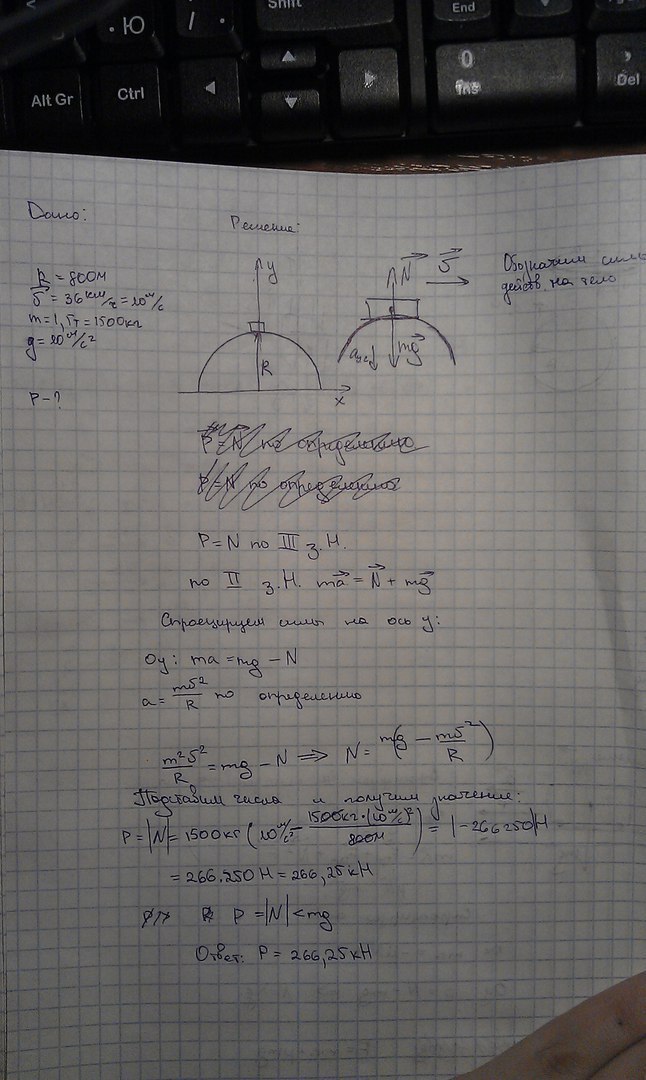 Shift
End
. Ю
/ .
Alt Gr
Ctrl
0
Ins
,
Del
Дано:
Решение:
R = 800м
v = 36 км/ч = 10 м/с
m = 1,5т = 1500кг
g = 10 м/с²
P - ?
y
R
x
N
v
aцс
mg
Обозначим силы
действ. на тело
P = N по определению
P = N по III з. Н.
по II з. Н. ma = N + mg
Спроецируем силы на ось y:
Oy: ma = mg - N
a = mv²/R по определению
m²v²/R = mg - N => N = m(g - mv²/R)
Подставим числа и получим значение:
P = |N| = 1500кг (10 м/с² - 1500кг·(10 м/с)²/800м) = |-266250| Н
= 266.250 Н = 266,25 кН
P = |N| < mg
Ответ: P = 266,25 кН